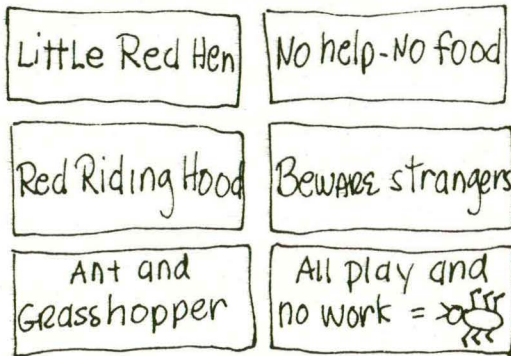 Little Red Hen
No help-No food
Red Riding Hood
Beware strangers
Ant and
Grasshopper
All play and
no work =